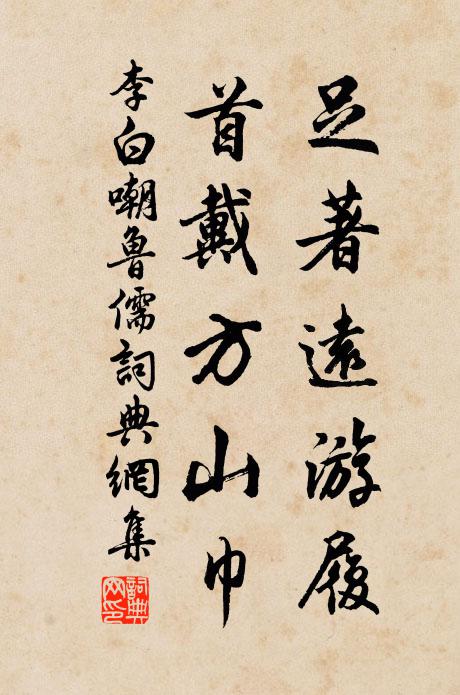 足著遠游履
首戴方山巾
李白嘲魯儒詞典網集
詞典網印